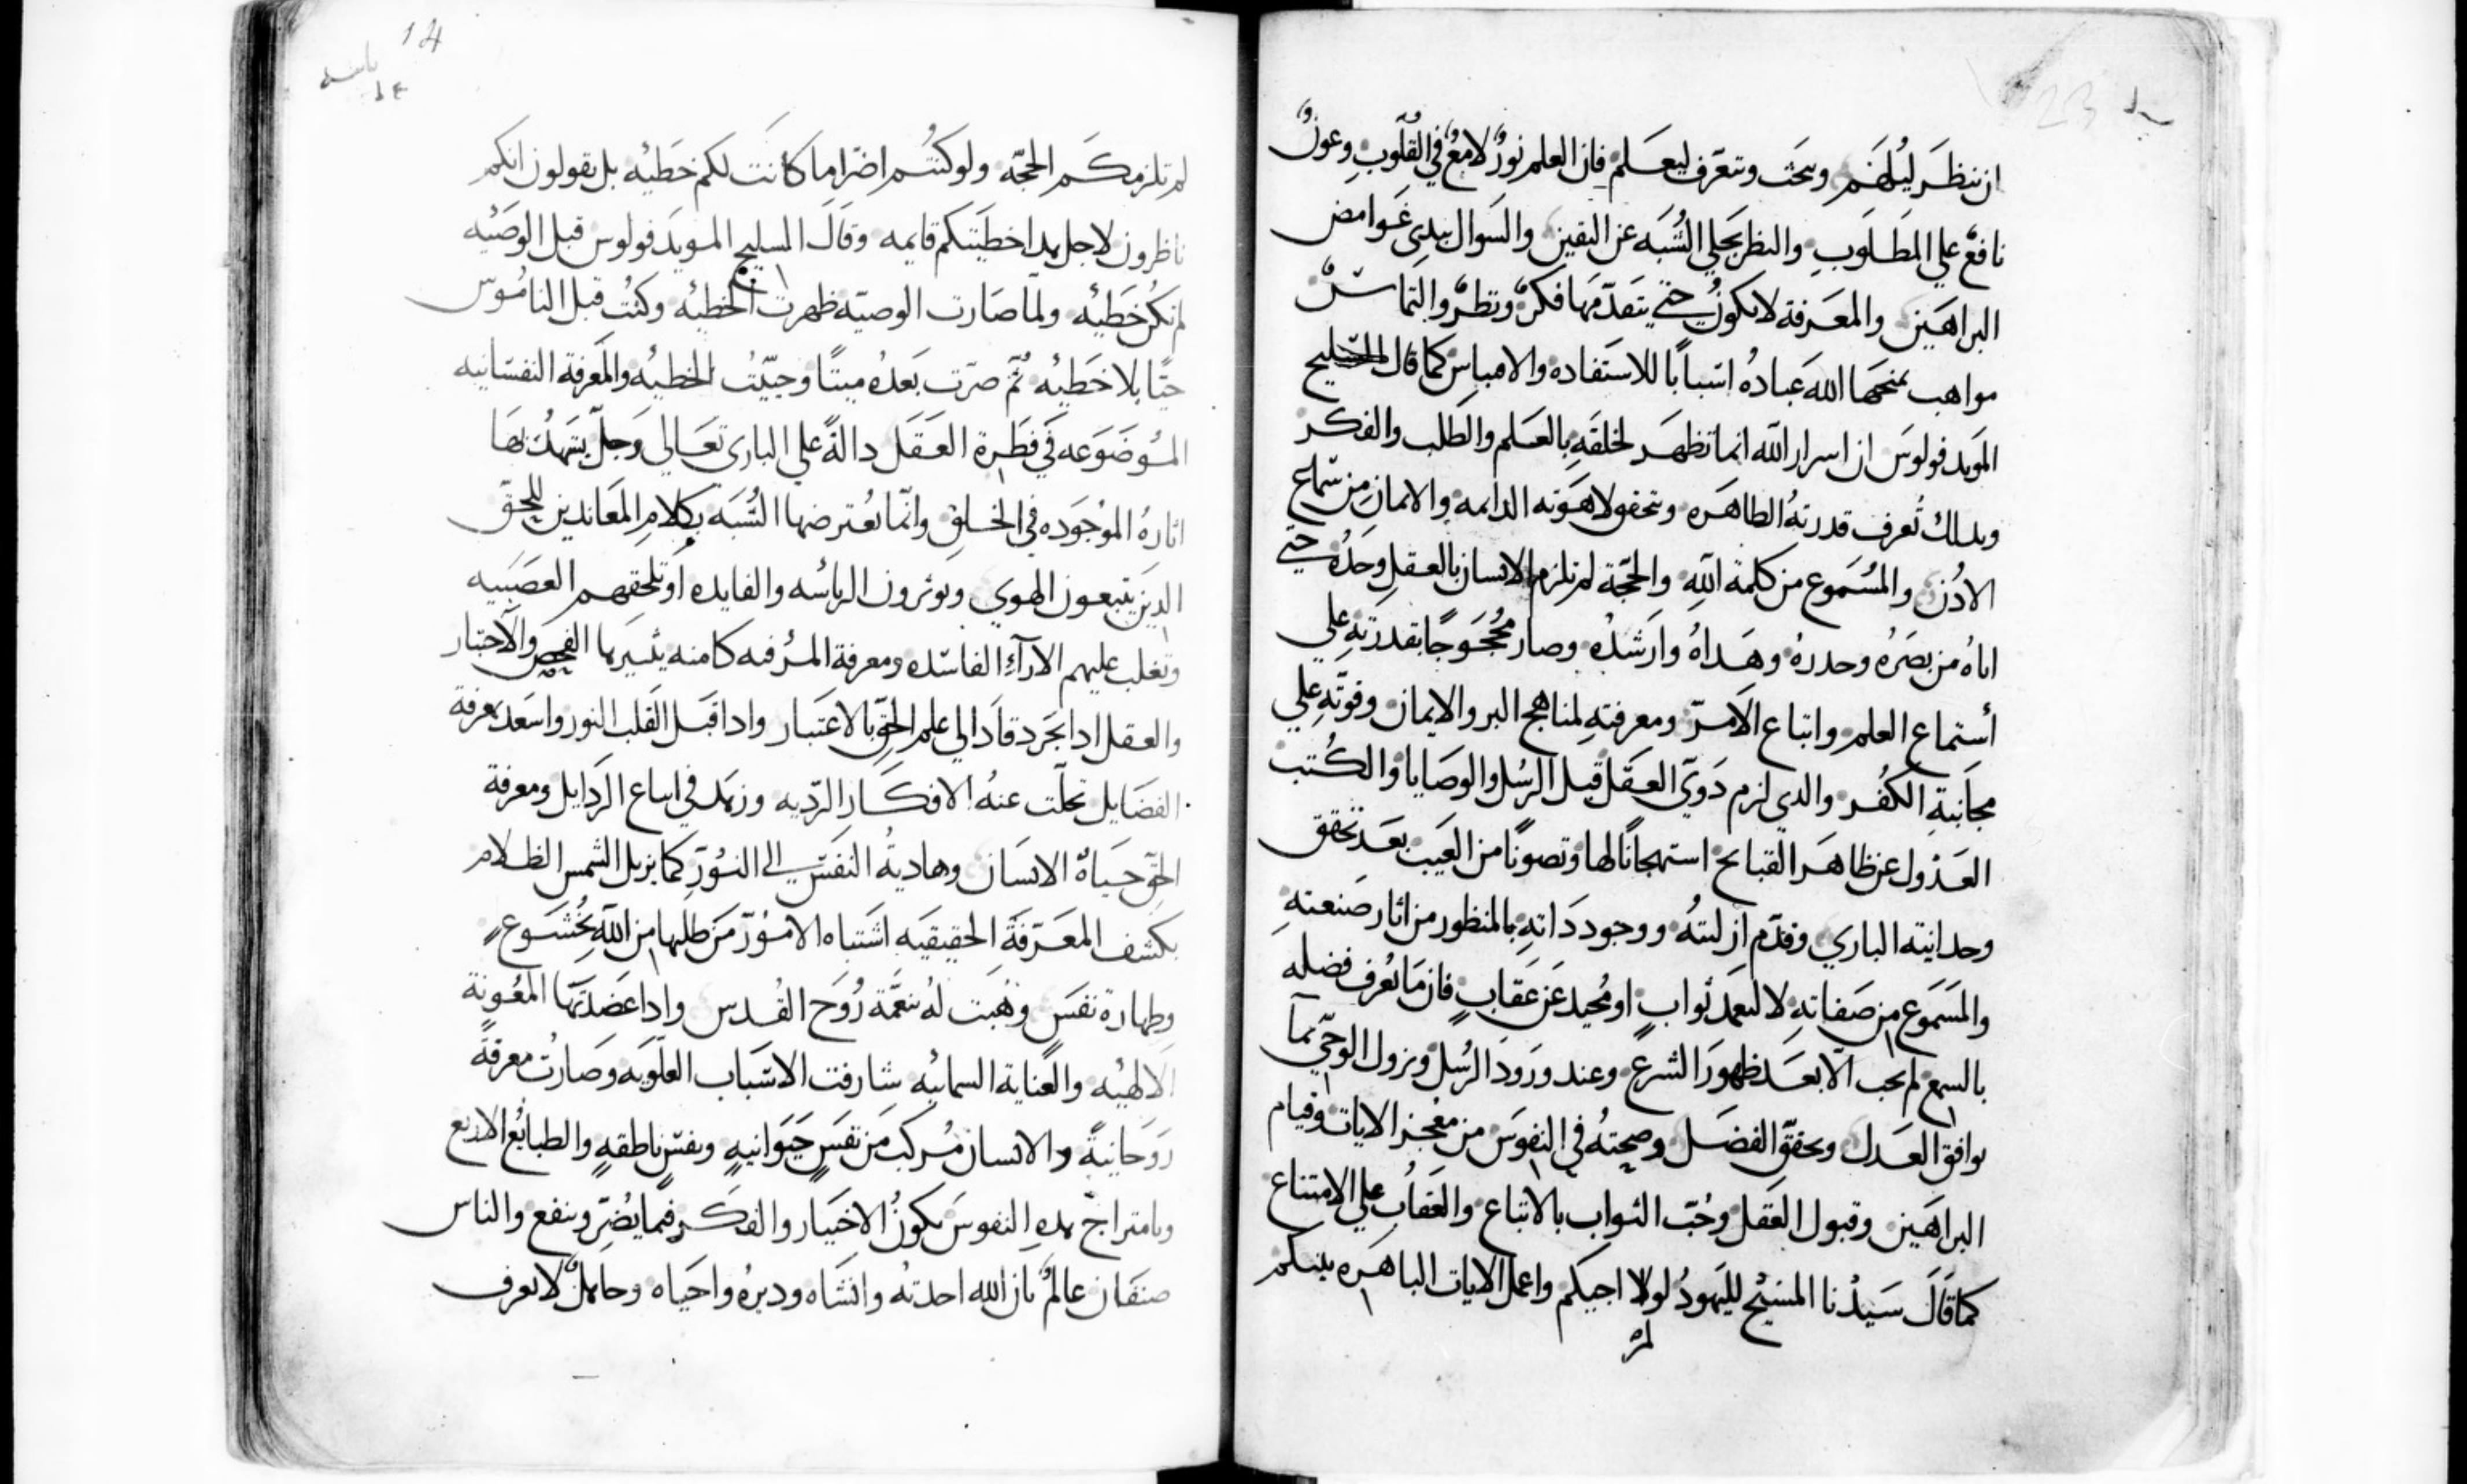 ان ننظر ليلهم ونبحث ونتعرّف ليعلم فان العلم نورٌ لامعٌ في القلوبِ وعونٌ
نافعٌ علي المطلوبِ والنظر يجلي الشُبَه عن اليقين والسوال يبدي غوامض
البراهين والمعرفة لا تكونُ حتي يتقدّمها فكرٌ ونظرٌ والتماسٌ
مواهب يمنحها الله عباده اسبابًا للاستفاده والاقتباس كما قال السليح
المويد فولوس ان اسرار الله انما تظهر لخلقهِ بالعلم والطلب والفكر
وبدلك تُعرف قدرتهُ الطاهره وتحقق لاهوته الدايمه والايمان من سماع
الادُن والمسموع من كلمة اللهِ والحجّة لم تلزم الانسان بالعقلِ وحدهُ حتي
اتاهُ من بصّرهُ وحدرهُ وهداهُ وارشدهُ وصار محجوجًا بقدرتهِ علي
أستماع العلم واتباع الامر ومعرفتهِ لمناهج البر والايمان وقوّتهِ علي
مجانبةِ الكفر والدي لزم دَوي العقل قبل الرسُل والوصايا والكتب
العدول عن ظاهر القبايح استهجانًا لها وتصونًا من العيب بعد تحقق
وحدانيته الباري وقدّم ازليتهُ ووجود داتهِ بالمنظور من اثار صنعتهِ
والمسموع من صفاتهِ لا لتعمد ثوابٍ او مُحيد عن عقابٍ فان ما تعُرف فضله
بالسمع لم يجب الّا بعد ظهور الشرع وعند ورود الرسُل ونزول الوحّي بما
يوافق العدل ويحقّق الفضل وصحتهُ في النفوس من معُجز الايات وقيام
البراهين وقبول العقل وحُبّ الثواب بالاتباع والعقابُ علي الامتناع
كما قال سيدُنا المسيح لليهودُ لولا اجيكم واعمل الايات الباهره بينكم
لم
14
لم تلزمكم الحجّه ولو كنتُم اضرّا ما كانت لكم خطيّه بل تقولون انكم
ناظرون لاجل هدا خطيتكم قايمه وقال السليح المويد فولوس قبل الوصيّه
لم تكن خطيّه ولما صارت الوصيّه ظهرت الخطيّه وكنُت قبل الناموس
حيًّا بلا خطيّه ثمّ صرت بعدهُ ميتًا وحيّيَت الخطيّه والمعرفة النفسانيه
الموضوعه في فطرة العقل دالةً علي الباري تعالي وجلّ يشهد بها
اثارهُ الموجوده في الخلق وانّما يعُترضها الشُبَه بكلامِ المعاندين للحقّ
الدين يتبعون الهوي ويوثرون الرياسه والفايده او تلحقهم العصبيه
وتغلب عليهم الاراءِ الفاسده ومعرفة المرُفه كامنه يثيرها الفحص والاختبار
والعقل ادا تجرد قاد الي علم الحقّ بالاعتبار وادا قبل القلب النور واسعد بمعرفة
الفضايل تخلّت عنهُ الافكار الردّيه وزهد في اتباع الردايل ومعرفة
الحقّ حياةُ الانسان وهاديةُ النفس الي النور كما يزيل الشمس الظلام
بكشف المعرفة الحقيقيه اشتباه الامور من طلبها من الله بخُشوعٍ
وطهارة نفسٍ وهُبت لهُ نعمة رُوح القُدس وادا عضدتها المعُونة
الالهيّه والعناية السمائيه شارفت الاسباب العلّويه وصارت معرفةً
روحانيةً والانسان مُركب من نفسٍ حيَوانيهٍ ونفسٍ ناطقهٍ والطبائع الاربع
وبامتراج هدهِ النفوس تكونُ الاختيار والفكر فيما يضُرّ وينفع والناس
صنفان عالمٌ بان الله احدثهُ وانشاه ودبرهُ واحياه وجاهلٌ لا يعرف